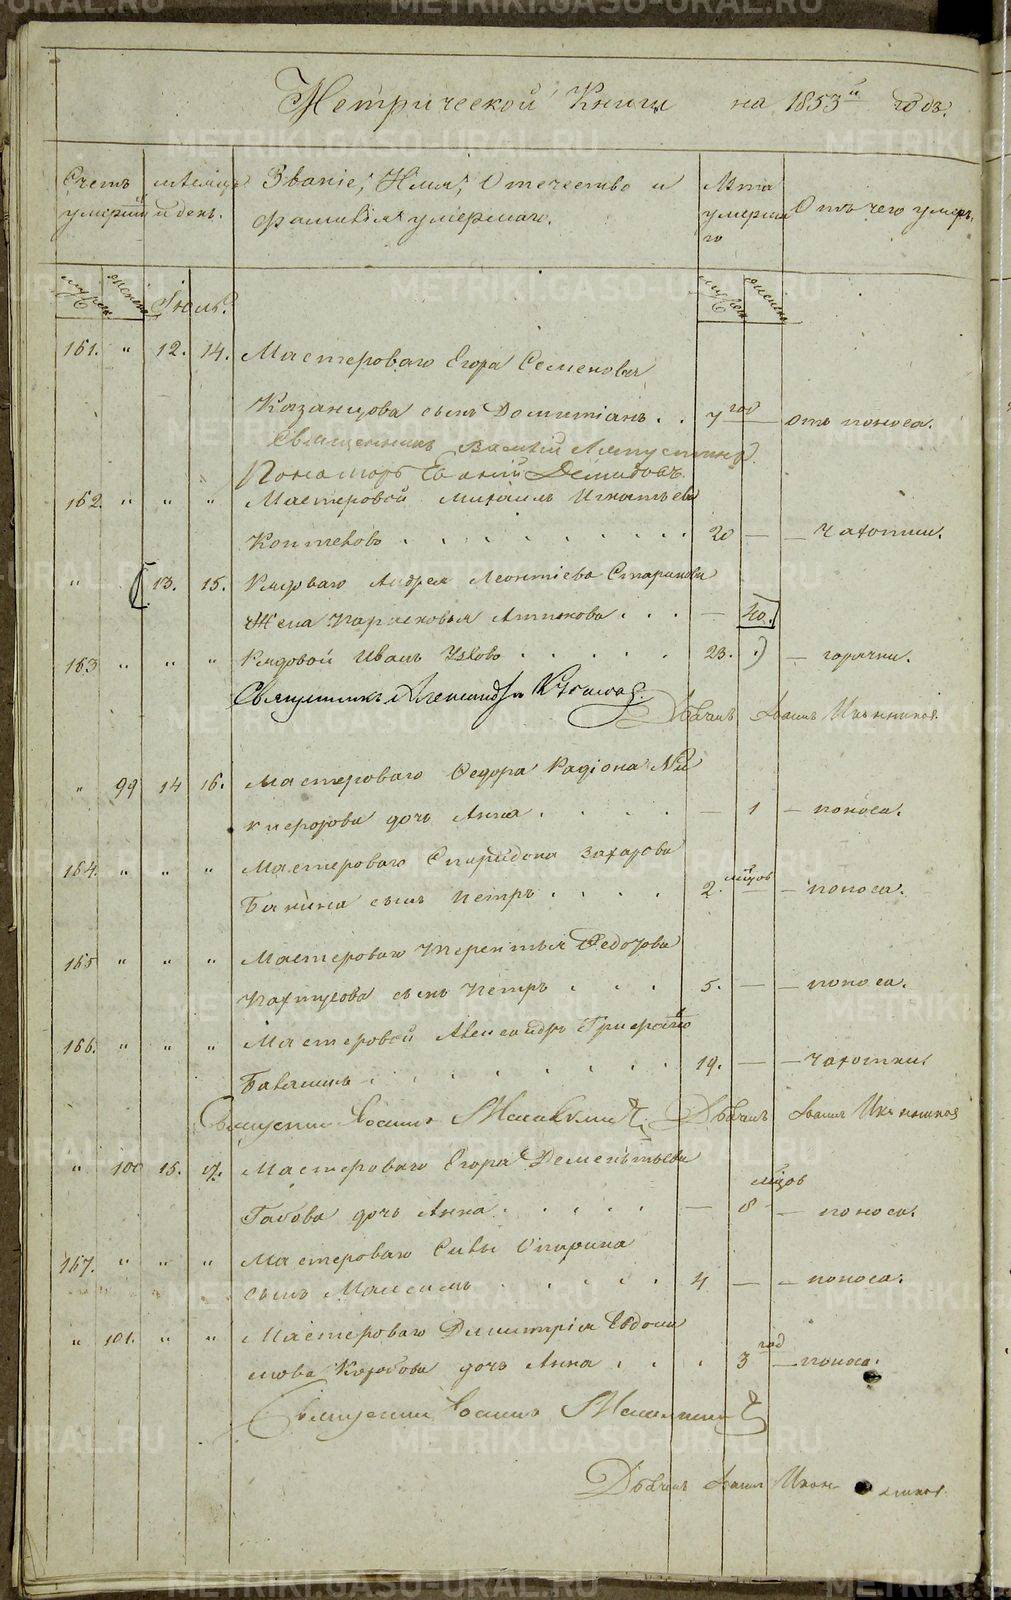 Метрической Книги на 1853й годъ.
Счетъ умершихъ
Месяцъ и день.
Званіе, Имя, Отечество и фамилія умершаго.
Лета умершаго
Отъ чего умеръ.
муж. пола женска Іюль. муж. пола женска
161. " 12. 14. Мастероваго Егора Семенова
Казанцова сынъ Домитіанъ . . 7 год — отъ поноса.
Священникъ Василій
Пономарь Демидовъ
162. " " " Мастеровой Михаилъ Игнатьевъ
Коптевъ . . . . . . . . . 20 — — чахотки.
" 13. 15. Рядоваго Андрея Леонтіева Старикова
Жена Парасковья Антонова . . . — 40.
163 " " " Рядовой Иванъ Ужовъ . . . . . 23. — горячки.
Священникъ Александръ
Дьячекъ Іоаннъ Иконниковъ
" 99 14 16. Мастероваго Федора Радіона Ни
кифорова дочь Анна . . . . — 1 — поноса.
164. " " " Мастероваго Спиридона Захарова
Бакина сынъ Петръ . . . . 2. мцов — — поноса.
165 " " " Мастероваго Терентья Федотова
Пахтусова сынъ Петръ . . . 5. — — поноса.
166. " " " Мастеровой Александръ Григорьев
. . . . . . . . 19. — — чахотки.
Священник Іоаннъ
Дьячекъ Іоаннъ Иконников
" 100 15. 17. Мастероваго Егора Дементьева
Габова дочь Анна . . . . . — 8 мцов — поноса.
167. " " " Мастероваго Савы Опарина
сынъ Максимъ . . . . . 4 — — поноса.
" 101. " " Мастероваго Димитрія Евдоки
мова Коробова дочь Анна . . . 3 год — поноса.
Священник Іоаннъ
Дьячекъ Іоаннъ Иконниковъ
METRIKI.GASO-URAL.RU